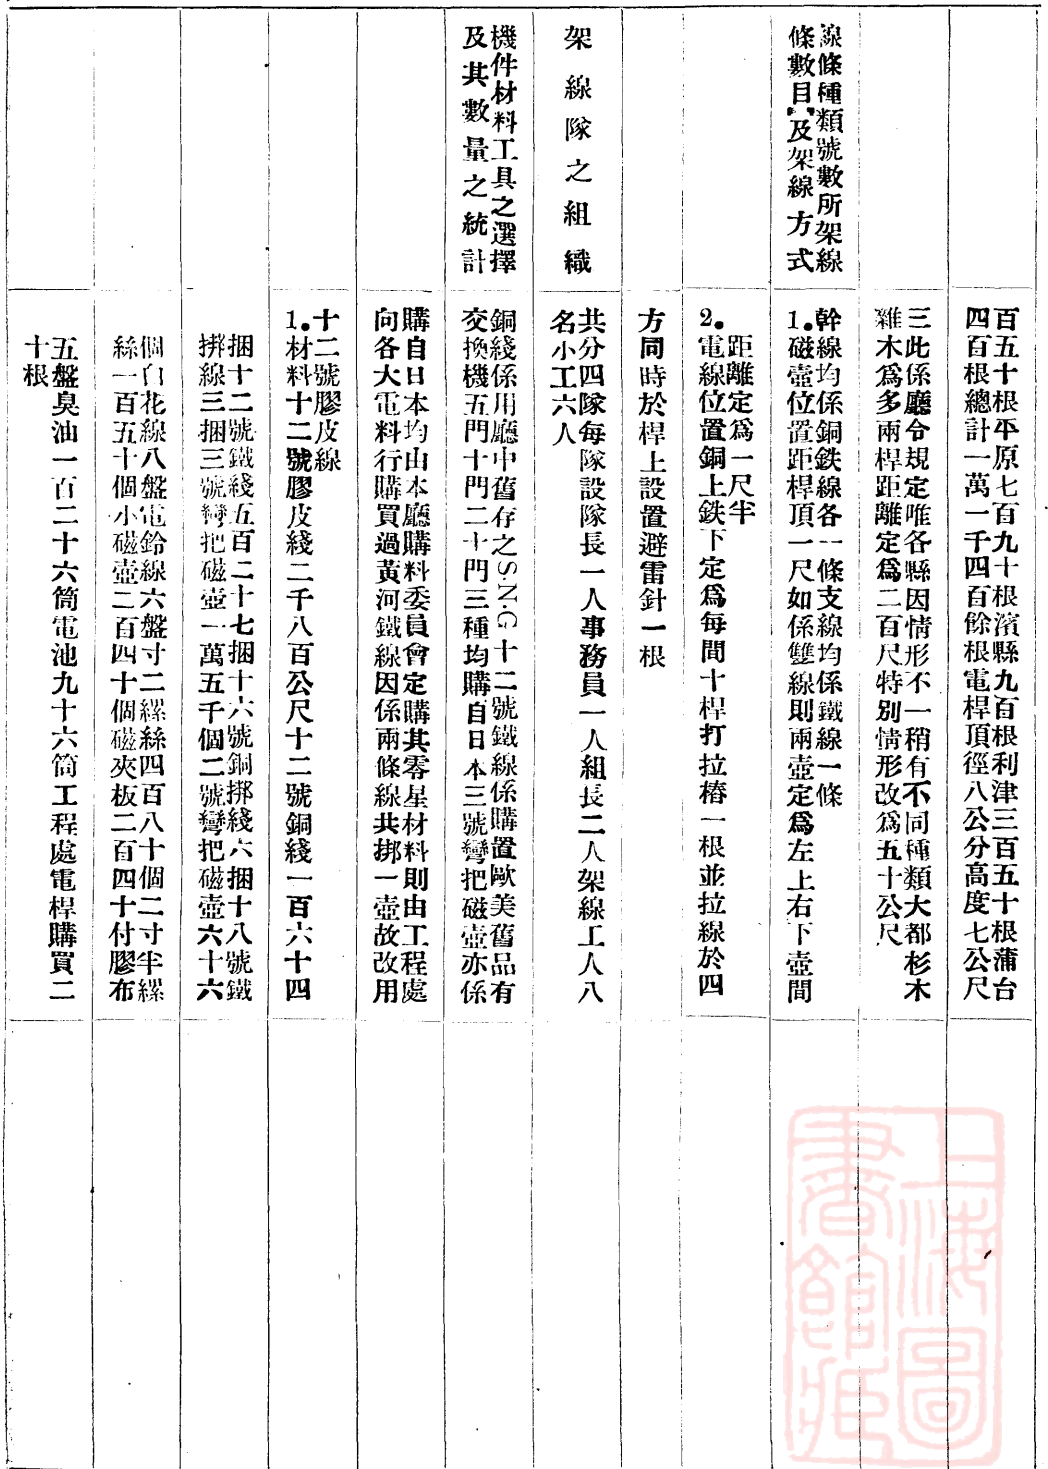 百五十根平原七百九十根濱縣九百根利津三百五十根蒲台
四百根總計一萬一千四百餘根電桿頂徑八公分高度七公尺
三此係廳令規定唯各縣因情形不一稍有不同種類大都杉木
雜木爲多兩桿距離定爲二百尺特別情形改爲五十公尺
線條種類號數所架線
條數目及架線方式
幹線均係銅鉄線各一條支線均係鐵線一條
1.磁壺位置距桿頂一尺如係雙線則兩壺定爲左上右下壺間
距離定爲一尺半
2.電線位置銅上鉄下定爲每間十桿打拉樁一根並拉線於四
方同時於桿上設置避雷針一根
架線隊之組織
共分四隊每隊設隊長一人事務員一人組長二人架線工人八
名小工六人
機件材料工具之選擇
及其數量之統計
銅綫係用廳中舊存之S·N·G十二號鐵線係購置歐美舊品有
交換機五門十門二十門三種均購自日本三號彎把磁壺亦係
購自日本均由本廳購料委員會定購其零星材料則由工程處
向各大電料行購買過黃河鐵線因係兩條線共挷一壺故改用
十二號膠皮線
1.材料十二號膠皮綫二千八百公尺十二號銅綫一百六十四
捆十二號鐵綫五百二十七捆十六號銅挷綫六捆十八號鐵
挷線三捆三號彎把磁壺一萬五千個二號彎把磁壺六十六
個白花線八盤電鈴線六盤寸二縲絲四百八十個二寸半縲
絲一百五十個小磁壺二百四十個磁夾板二百四十付膠布
五盤臭油一百二十六筒電池九十六筒工程處電桿購買二
十根
上海圖
書館藏